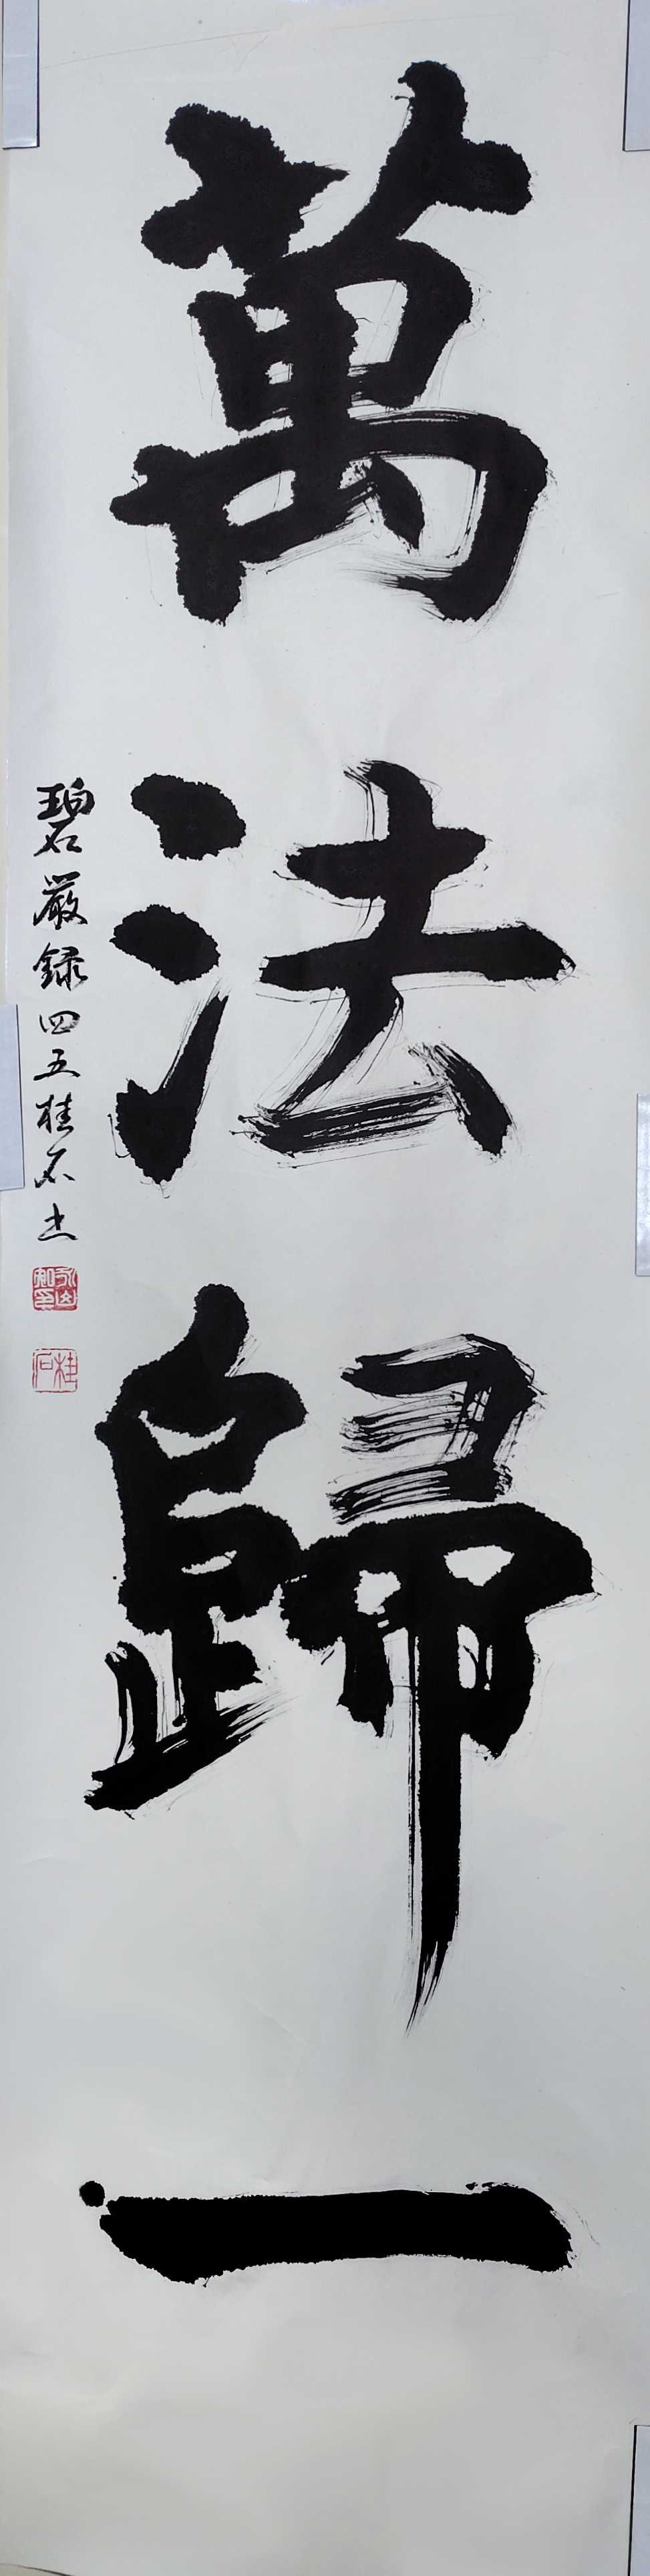 萬法歸一
碧巌録四五桂石出
桂石